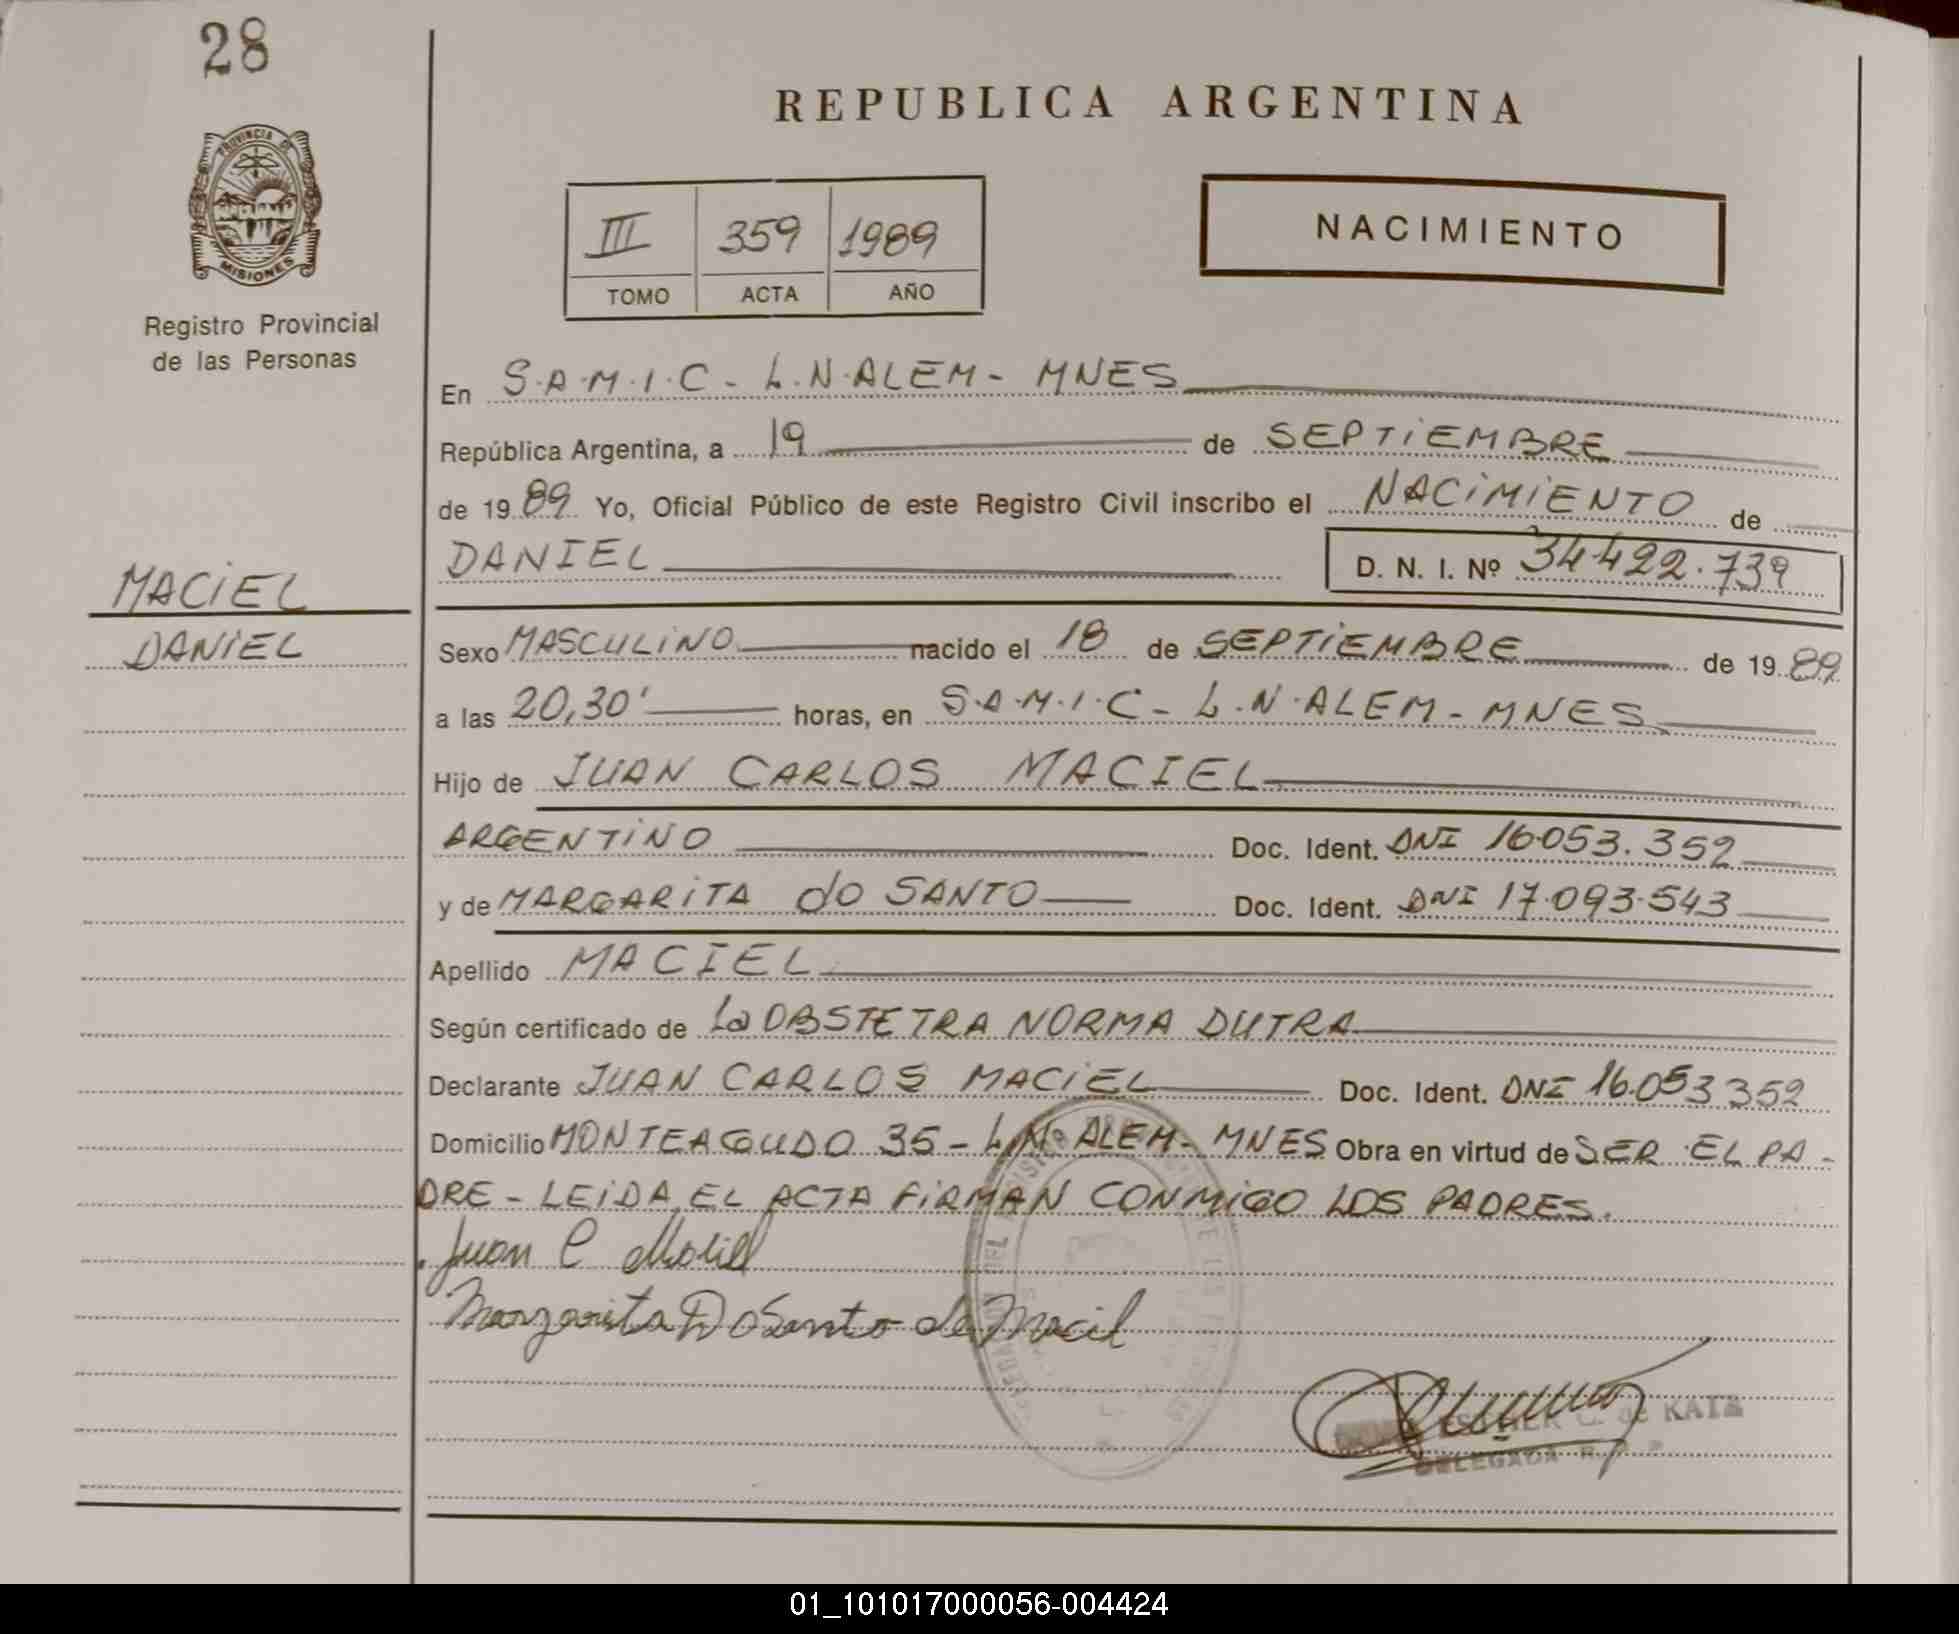 28
REPUBLICA ARGENTINA
PROVINCIA DE
MISIONES
Registro Provincial
de las Personas
III 359 1989
TOMO ACTA AÑO
NACIMIENTO
En S.A.M.I.C - L.N.ALEM - MNES
República Argentina, a 19 de SEPTIEMBRE
de 1989 Yo, Oficial Público de este Registro Civil inscribo el NACIMIENTO de
DANIEL D. N. I. Nº 34.422.739
MACIEL
DANIEL
Sexo MASCULINO nacido el 18 de SEPTIEMBRE de 1989
a las 20,30' horas, en S.A.M.I.C - L.N.ALEM - MNES
Hijo de JUAN CARLOS MACIEL
ARGENTINO Doc. Ident. DNI 16.053.352
y de MARGARITA do SANTO Doc. Ident. DNI 17.093.543
Apellido MACIEL
Según certificado de La OBSTETRA NORMA DUTRA
Declarante JUAN CARLOS MACIEL Doc. Ident. DNI 16.053352
Domicilio MONTEAGUDO 35 - L.N. ALEM - MNES Obra en virtud de SER EL PA-
DRE - LEIDA EL ACTA FIRMAN CONMIGO LOS PADRES.
Juan C Maciel
Margarita Do Santo de Maciel
ESTHER C. de KATZ
DELEGADA R. P. P
01_101017000056-004424